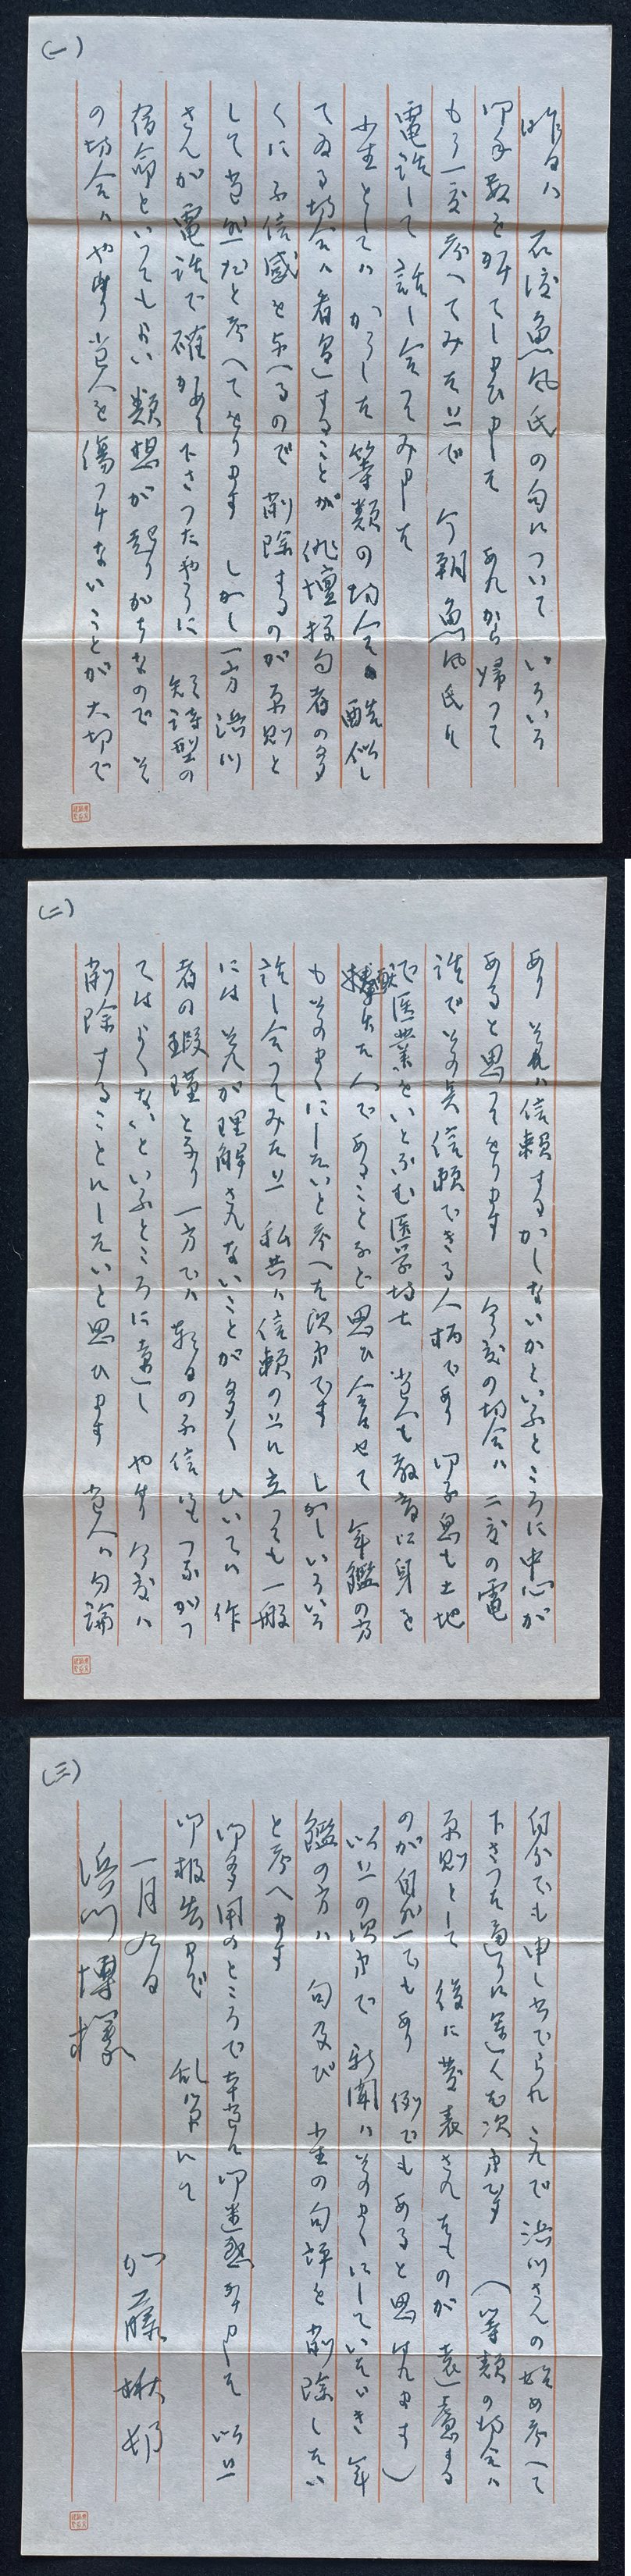 (一)
昨日は 石渡魚風氏の句について いろいろ
御手数を掛てしまひました あれから帰つて
もう一度考へてみた上で 今朝魚風氏に
電話して 話し合つてみました
小生としては かうした等類の場合 酷似し
てゐる場合は 看過することが俳壇投句者の多
くに不信感を与へるので 削除するのが原則と
して当然だと考へてをります しかし一方 浜川
さんが電話で確かめて下さつたやうに 短詩型の
宿命といつてもよい類想が起りがちなので そ
の場合は やはり当人を傷つけないことが大切で
(二)
あり それは信頼するかしないかといふところに中心が
あると思つてをります 今度の場合は 二度の電
話でその点信頼できる人柄であり 御子息も土地
で医業をいとなむ医学博士 当人も教育に身を
捧げた人であることなど思ひ合せて 年鑑の方
もそのまゝにしたいと考へた次第です しかしいろいろ
話し合つてみた上 私共は信頼の上に立つても一般
には それが理解されないことが多く ひいては 作
者の瑕瑾となり 一方では 類句の不信にもつながつ
てはよくないといふところに達し やはり今度は
削除することにしたいと思ひます 当人は勿論
(三)
何分でも申し出でられ これで浜川さんの始め考へて
下さつた通りに運んだ次第です (等類の場合は
原則として 後に発表されたものが遠慮する
のが自然でもあり 例でもあると思はれます)
以上の次第で 新聞はそのまゝにしていたゞき 年
鑑の方は 句及び 小生の句評を削除したい
と考へます
御多用のところで本当に御迷惑かけました 以上
御報告まで 乱筆にて
一月九日
加藤楸邨
浜川博様